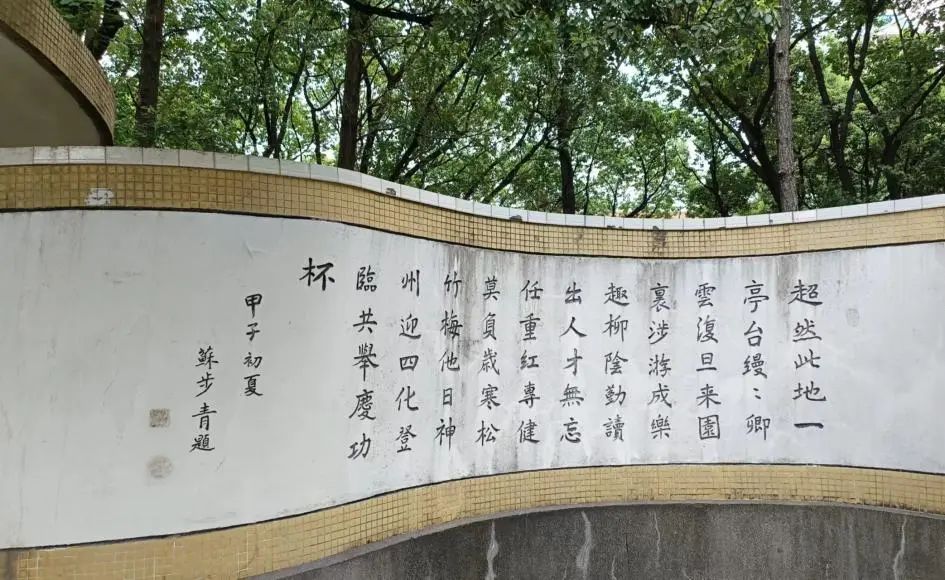 超然此地一
亭台缦〻卿
雲復旦来園
裏涉游成樂
趣柳陰勤讀
出人才無忘
任重紅專健
莫負歲寒松
竹梅他日神
州迎四化登
臨共舉慶功
杯
甲子初夏
蘇步青題